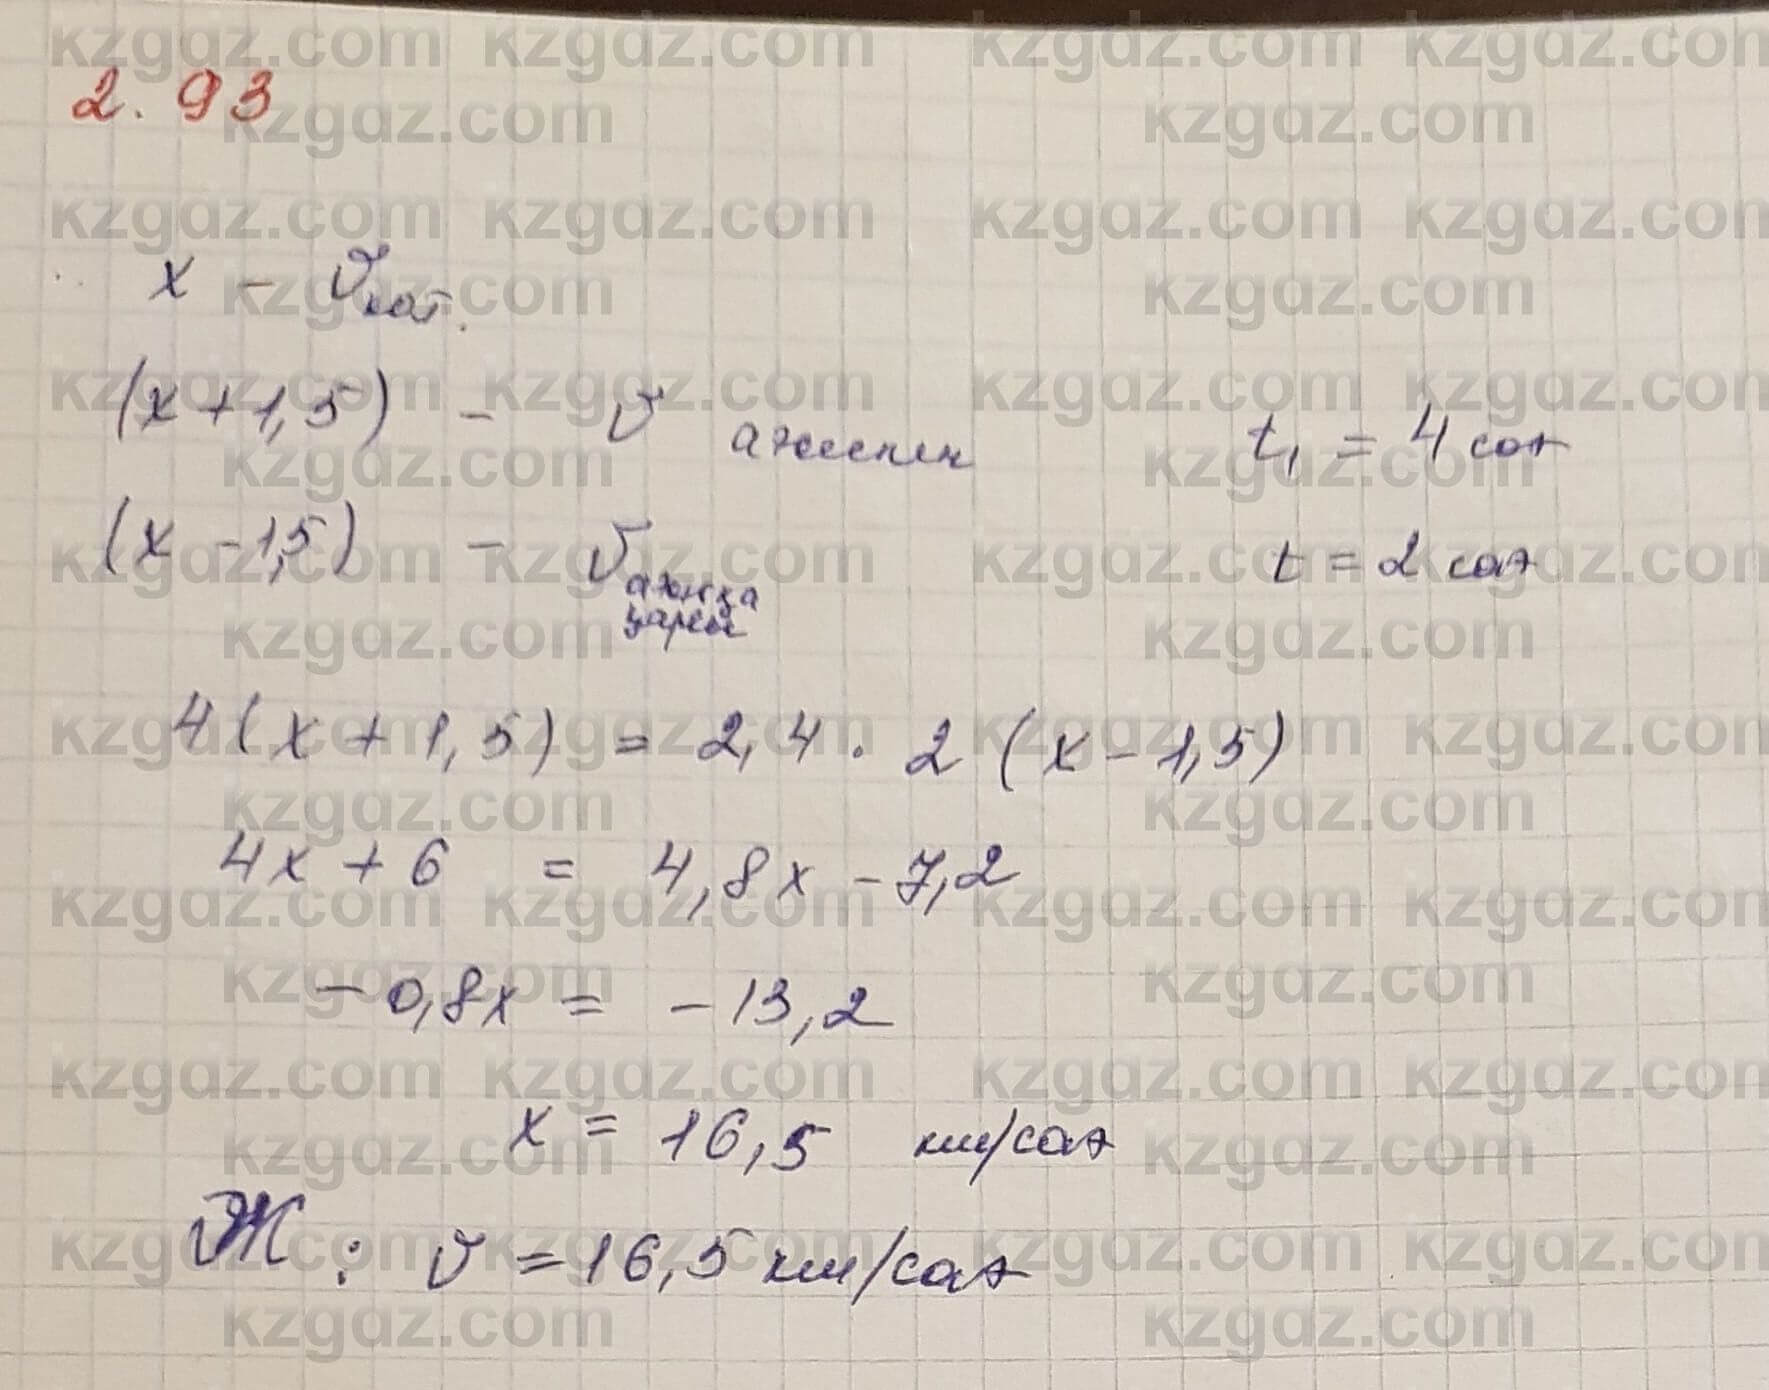 2.93
x - V кат.
(x+1,5) - V ағыспен t₁ = 4 сағ
(x-1,5) - V ағысқа қарсы t = 2 сағ
4(x+1,5) = 2,4 · 2(x-1,5)
4x+6 = 4,8x-7,2
-0,8x = -13,2
x = 16,5 км/сағ
Ж: V = 16,5 км/сағ
kzgdz.com